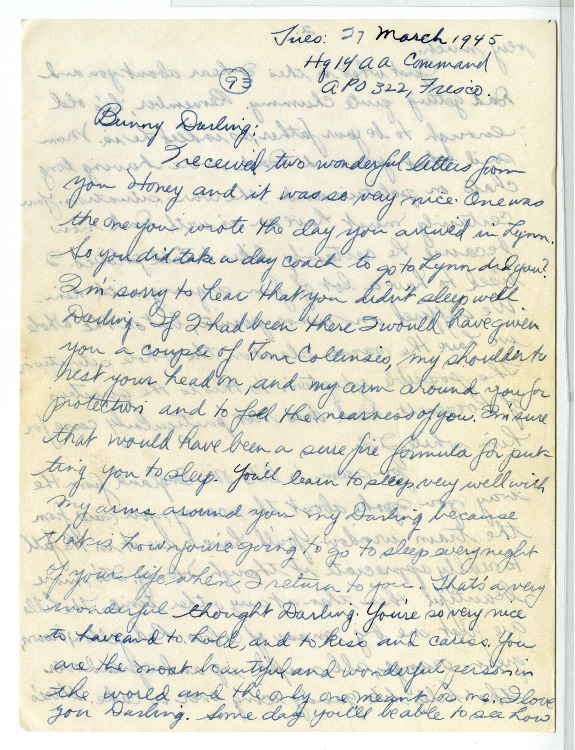 Tues: 27 March 1945
Hq 14 A A Command
APO 322, Frisco.
93
Bunny Darling:
I received two wonderful letters from
you Honey and it was so very nice. One was
the one you wrote the day you arrived in Lynn.
So you did take a day coach to go to Lynn did you?
I'm sorry to hear that you didn't sleep well
Darling. If I had been there I would have given
you a couple of Tom Collinses, my shoulder to
rest your head on, and my arm around you for
protection and to feel the nearness of you. I'm sure
that would have been a sure fire formula for put-
ting you to sleep. You'll learn to sleep very well with
my arms around you my Darling because
that is how you're going to go to sleep every night
of your life when I return to you. That's a very
wonderful thought Darling. You're so very nice
to have and to hold, and to kiss and caress. You
are the most beautiful and wonderful person in
the world and the only one meant for me. I love
you Darling. Some day you'll be able to see how